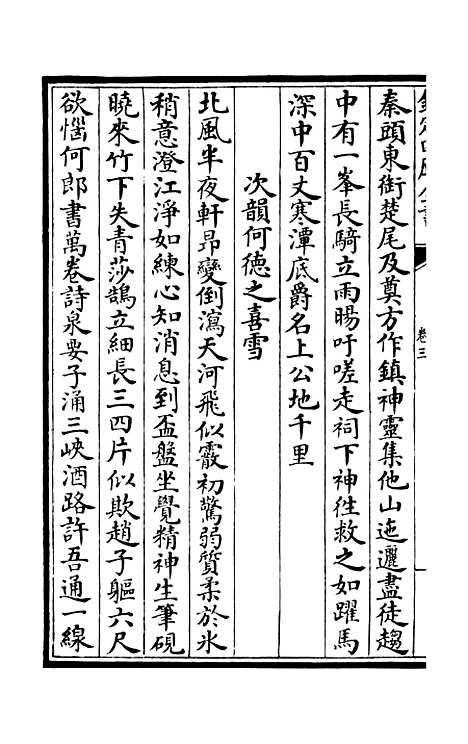 秦頭東銜楚尾及奠方作鎮神靈集他山迤邐盡徒趨
中有一峯長騎立雨暘吁嗟走祠下神徃救之如躍馬
深中百丈寒潭底爵名上公地千里
次韻何德之喜雪
北風半夜軒昻變倒瀉天河飛似霰初驚弱質柔於氷
稍意澄江淨如練心知消息到盃盤坐覺精神生筆硯
曉來竹下失青莎鵠立細長三四片似欺趙子軀六尺
欲惱何郎書萬卷詩泉要子涌三峽酒路許吾通一線